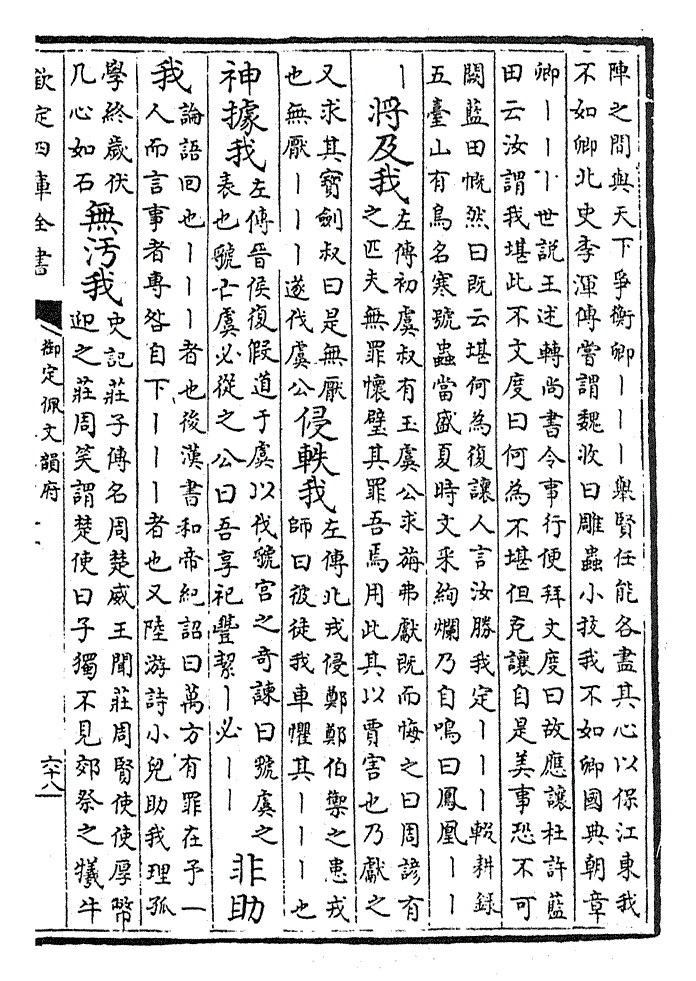 陣之間與天下爭衡卿丨丨丨舉賢任能各盡其心以保江東我
不如卿北史李渾傳嘗謂魏收曰雕蟲小技我不如卿國典朝章
卿丨丨丨世説王述轉尚書令事行便拜文度曰故應讓杜許藍
田云汝謂我堪此不文度曰何為不堪但克讓自是美事恐不可
闕藍田慨然曰既云堪何為復讓人言汝勝我定丨丨丨輟耕録
五臺山有鳥名寒號蟲當盛夏時文采絢爛乃自鳴曰鳳凰丨丨
丨
將及我
左傳初虞叔有玉虞公求旃弗獻既而悔之曰周諺有
之匹夫無罪懷璧其罪吾焉用此其以賈害也乃獻之
又求其寶劍叔曰是無厭
也無厭丨丨丨遂伐虞公
侵軼我
左傳北戎侵鄭鄭伯禦之患戎
師曰彼徒我車懼其丨丨丨也
神據我
左傳晉侯復假道于虞以伐虢宫之奇諫曰虢虞之
表也虢亡虞必從之公曰吾享祀豐潔丨必丨丨
非助
我
論語回也丨丨丨者也後漢書和帝紀詔曰萬方有罪在予一
人而言事者專咎自下丨丨丨者也又陸游詩小兒助我理孤
學終歲伏
几心如石
無汚我
史記莊子傳名周楚威王聞莊周賢使使厚幣
迎之莊周笑謂楚使曰子獨不見郊祭之犧牛
欽定四庫全書
御定佩文韻府
六十八